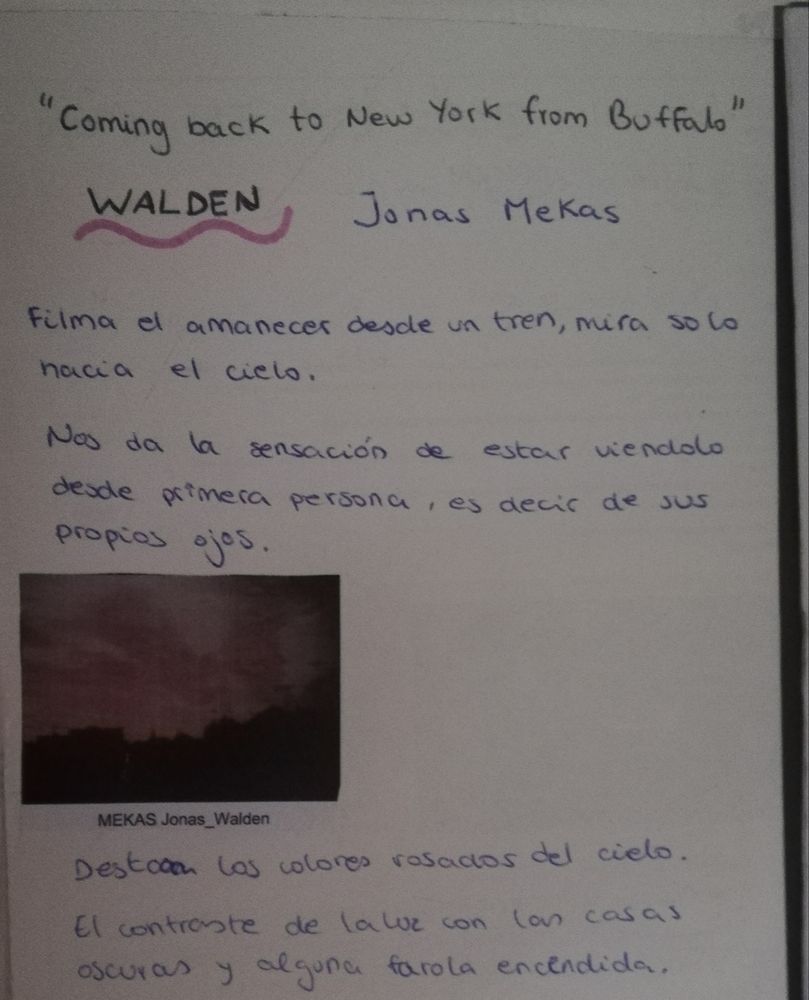 "Coming back to New York from Buffalo"
WALDEN Jonas Mekas
Filma el amanecer desde un tren, mira solo
hacia el cielo.
Nos da la sensación de estar viendolo
desde primera persona, es decir de sus
propios ojos.
MEKAS Jonas_Walden
Destacan los colores rosados del cielo.
El contraste de la luz con las casas
oscuras y alguna farola encendida.